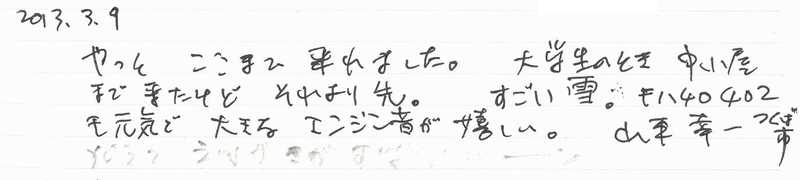 2013.3.9
やっと ここまで 来れました。 大学生のとき 中小屋
まで 来たけど それより先。 すごい 雪。キハ40 402
も元気で 大きな エンジン音が 嬉しい。 幸一